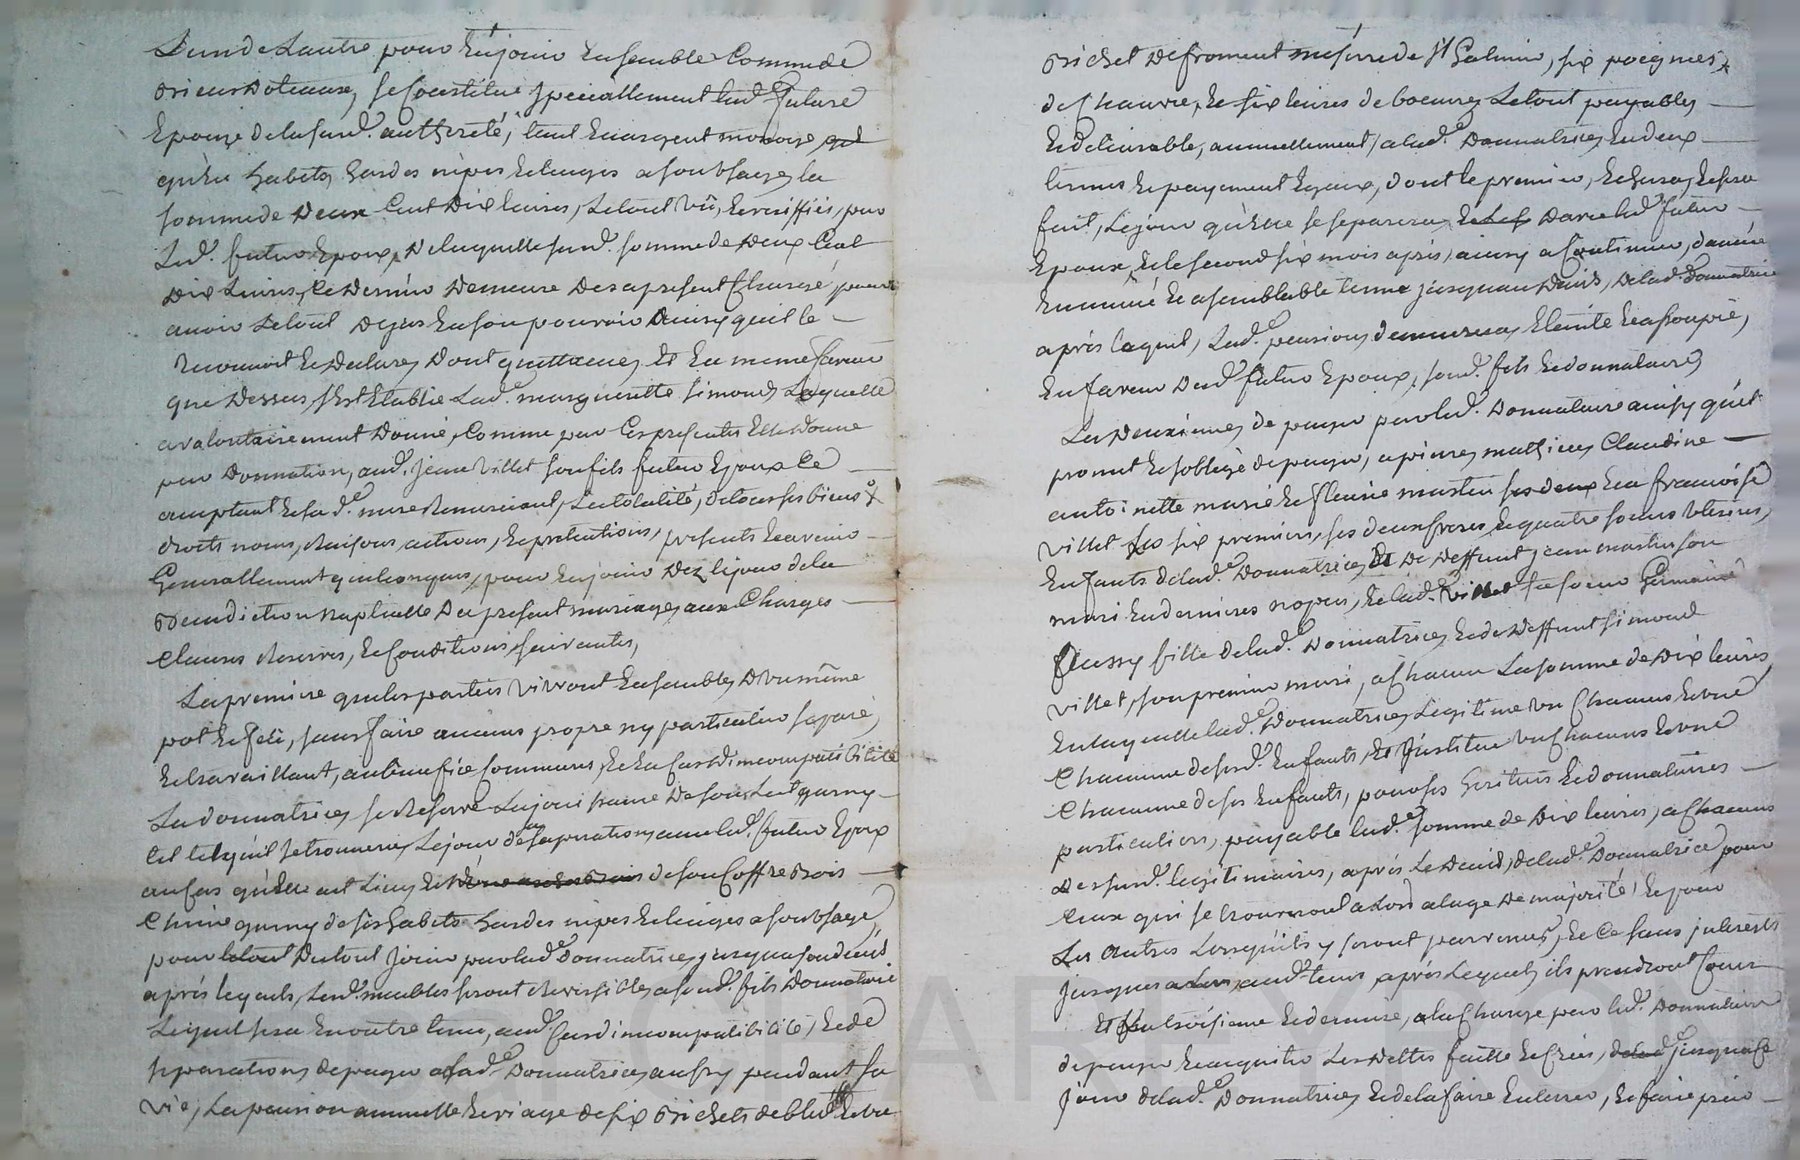 L'un de Lautre pour En jouir Ensemble Comme de
Biens Dotaux, se Constitue specialleement lad.e future
Epouze de la sus.d. authorité, tant En argent monoye
qu'En habits hardes nipes Et linges a son Usage, la
somme de Deux Cent Dix livres, Le tout Vû, Et veriffiés, par
Led. futur Epoux, De laquelle susd. somme de Deux Cent
Dix Livres, Ce Dernier Demeure Des a present Chargé pour
avoir Le tout Deja En son pouvoir Ainsy qu'il le
Reconnoit Et Declare, Dont quittance, Et En meme faveur
que Dessus, s'Est Etablie Lad.e marguerite simond, Laquelle
a volontairement Donné, Comme par Ces presentes Elle Donne
par Donnation, aud. jean Villet son fils futur Epoux Ce
acceptant Et sad.e mere Remerciant, La totalité, De tous ses biens
droits noms, Raisons, actions, Et pretentions, presents Et avenir
Generallement quelconques, pour En jouir Dez le jour de la
Benediction Nuptialle Du present mariage, aux Charges
Clauses Reserves, Et Conditions suivantes,
La premiere que les parties Vivront Ensemble, D'un même
pot Et feu, sans faire aucuns propre ny particulier separé,
Et travaillant, au benefice Commun, Et En Cas D'incompatibilité
La donnatrice, se Reserve La jouissance De son Lit garny
tel tel qu'il se trouvera, Le jour de la separation, avec led. futur Epoux
au Cas qu'Elle ait Lieu, Et de son Coffre Bois
Chene garny de ses habits hardes nipes Et linges a son Usage,
pour Du tout Jouir par lad.e Donnatrice, jusqu'a son deceds
après lequels, Lesd. meubles seront Reversibles a sond. fils Donnataire
Lequel sera En outre tenu, aud. Cas d'incompatibilité, Et de
separation, de payer a sad.e Donnatrice, aussy pendant sa
vie, La pension annuelle Et viagere de six Bichets de bled
Bichet De froment mesure de St Galmier, six poignées
de Chanvre, Et six livres de beurre, Le tout payable,
Et delivrable, annuellement, a lad.e Donnatrice, En deux
termes Et payement Egaux, dont le premier, Echera, Et sera
fait, Le jour qu'Elle se separera, D'avec led. futur
Epoux, Et le second six mois après, ainsy a Continuer, d'année
En année Et a semblable terme jusqu'au Deceds, De lad. Donnatrice
après lequel, Lad.e pension, demeurera, Eteinte Et assoupie,
En faveur Dud. futur Epoux, sond. fils Et donnataire,
La Deuxieme, de payer par led. Donnataire ainsy qu'il
promet Et s'oblige de payer, a pierre, mathieu, Claudine
antoinette marie Et fleurie martin Et a françoise
Villet les six premiers, ses deux freres, Et quatre soeurs Uterines,
Enfants de lad.e Donnatrice, Et De Deffunt jean martin son
mari En dernieres nopces, Et lad. Villet sa soeur Germaine
Aussy fille de lad.e Donnatrice, Et de Deffunt simond
Villet, son premier mari, a Chacun La somme de Dix livres,
En laquelle lad.e Donnatrice, Legitime Un Chacuns Et Une
Chacune de sesd. Enfants, Et Institue Un Chacuns Et Une
Chacune de ses Enfants, pour ses heritiers Et donnataires
particuliers, payable lad.e somme de Dix livres, a Chacuns
De susd. legitimaires, après Le Deceds, de lad.e Donnatrice pour
Ceux qui se trouveront alors a l'age De majorité, Et pour
Les Autres Lorsqu'ils y seront parvenus, Et Ce sans jnterests
jusques aud. tems, après Lequel, ils prendront Cours
Et troisieme Et derniere, a la Charge par led. Donnataire
de payer Et acquiter Les Dettes faitte Et Crées, jusqu'a Ce
Jour de lad.e Donnatrice, Et de la faire Enterrer, Et faire prier
CHAREYRON